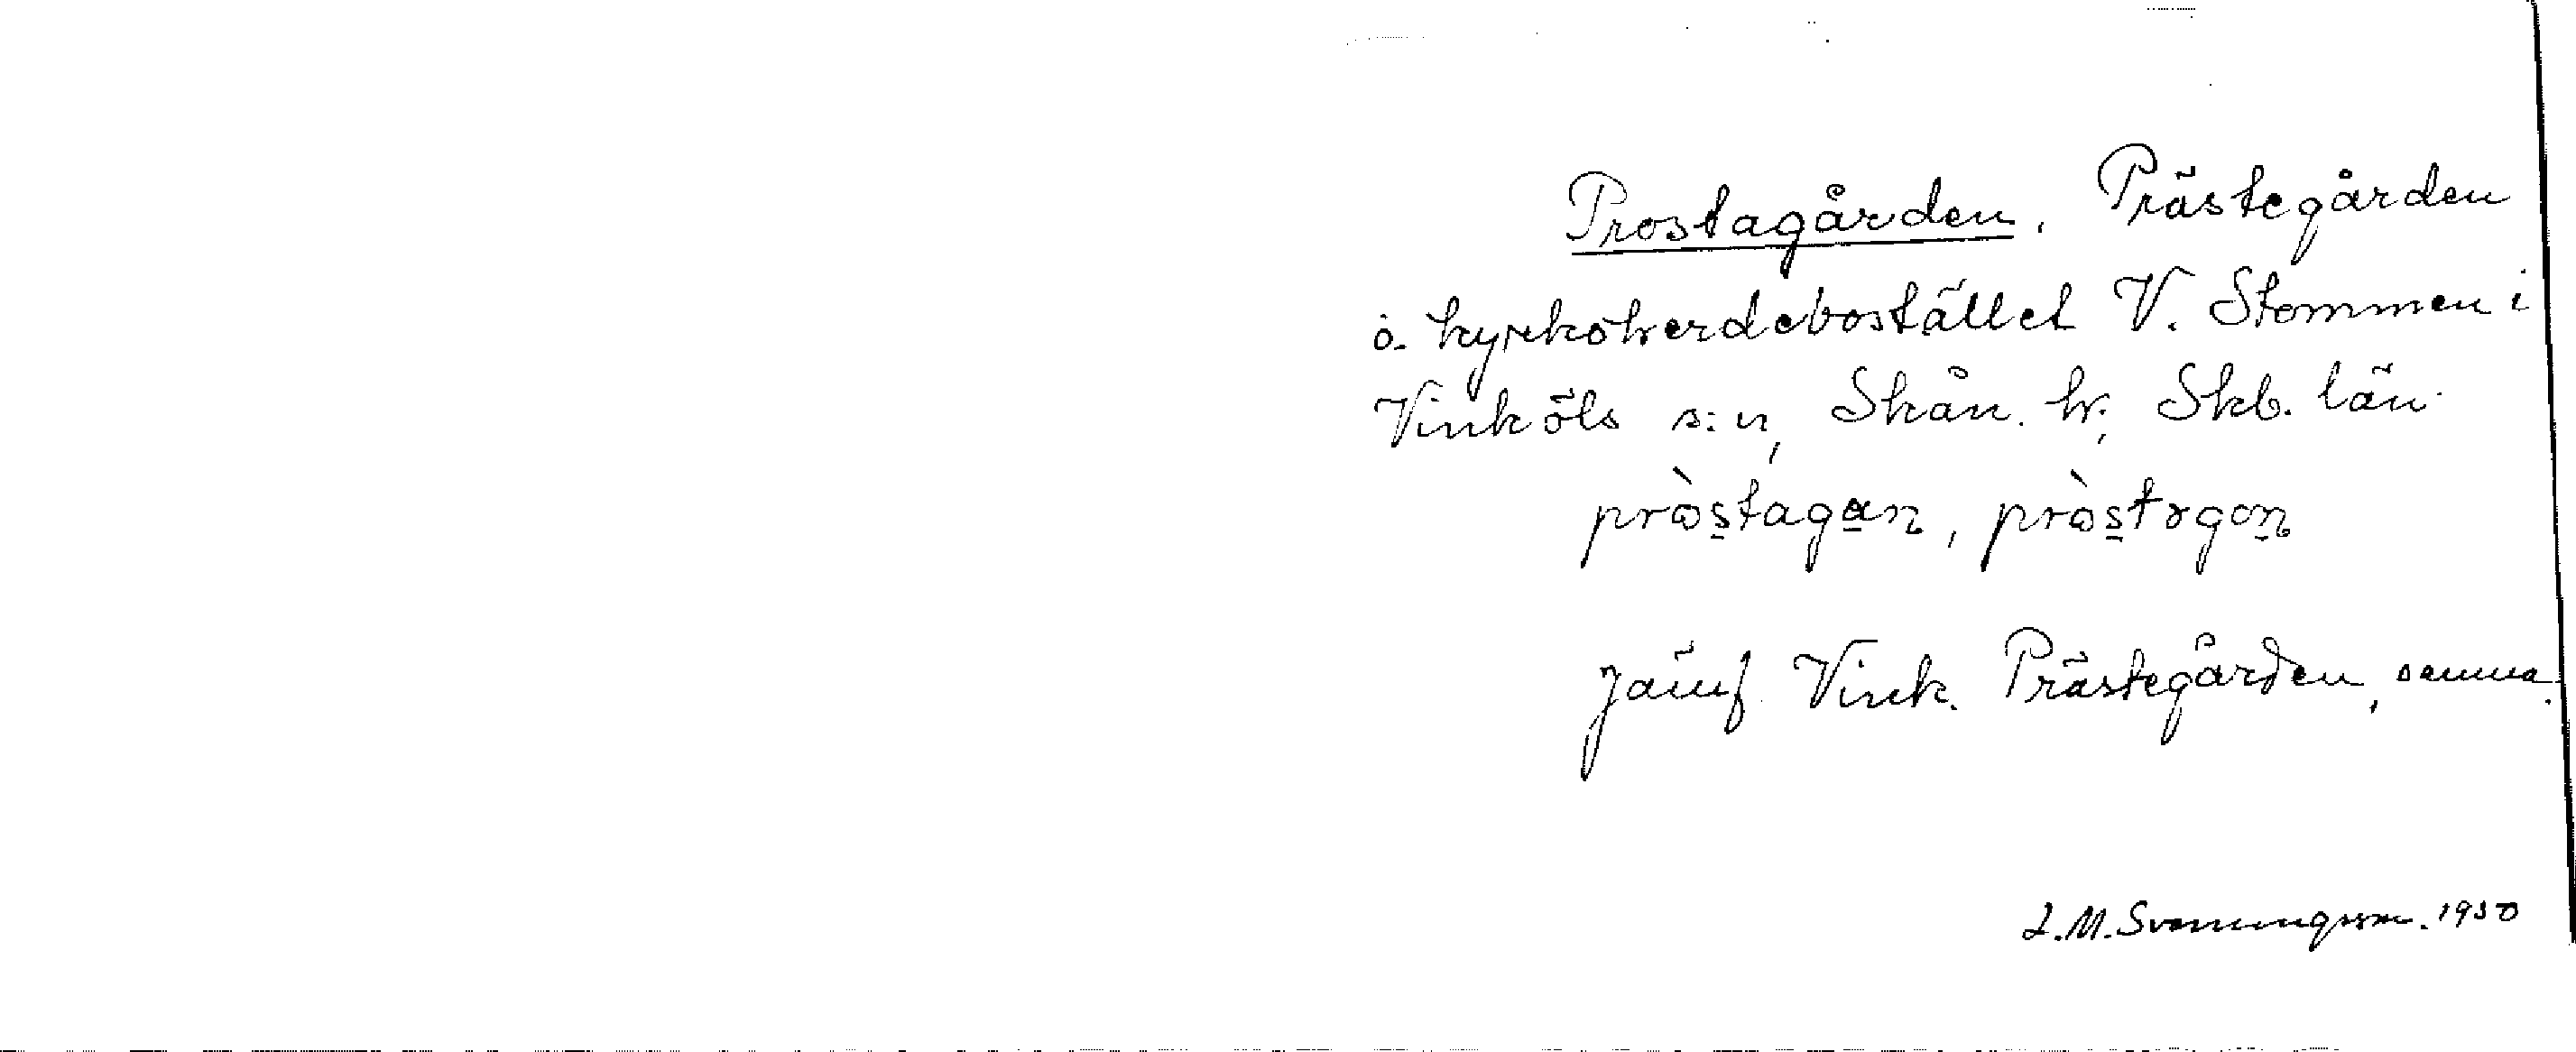 Prostagården. Prästegården
å kyrkoherdebostället V. Stommen i
Vinköls s:n, Skån. hr; Skb. län.
pròstagan, pròstɤgon
Jämf. Vink. Prästegården, samma.
L.M. Svenungsson. 1930